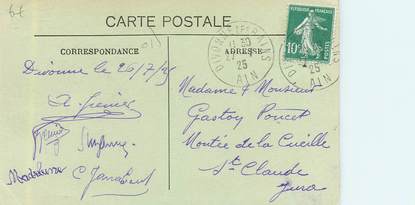 6t
CARTE POSTALE
CORRESPONDANCE
ADRESSE
Divonne le 26/7/25
Madeleine
Madame & Monsieur
Gaston Poncet
Montée de la Cueille
St Claude
Jura
DIVONNE-LES-BAINS
25
AIN
REPUBLIQUE FRANÇAISE
10c
25
AIN